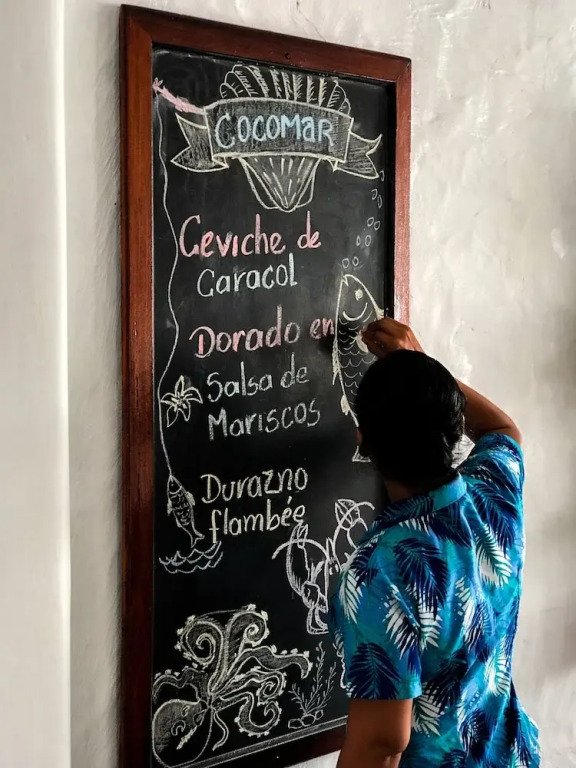 COCOMAR
Ceviche de
Caracol
Dorado en
Salsa de
Mariscos
Durazno
flambée